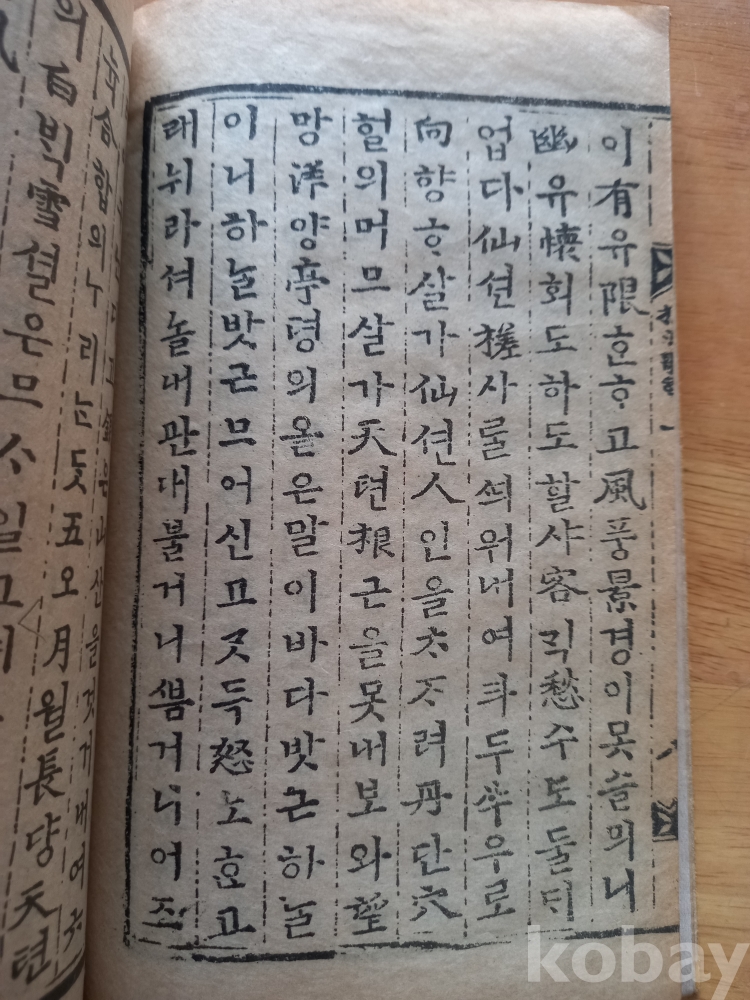 이有유限ᄒᆞᆫᄒᆞ고風풍景경이못슬믜니
幽유懷회도하도할샤客ᄀᆡᆨ愁수도둘ᄃᆡ
업다仙션槎사ᄅᆞᆯᄯᅴ워내여斗두牛우로
向향ᄒᆞ살가仙션人인을ᄎᆞᄌᆞ려丹단穴
헐의머므살가天텬根근을못내보와望
망洋양亭뎡의올은말이바다밧근하ᄂᆞᆯ
이니하ᄂᆞᆯ밧근므어신고ᄀᆞᆺ득怒노ᄒᆞᆫ고
래뉘라셔놀내관대블거니ᄲᅳᆷ거니어즈
銀은山산을것거내여六
눅合합의ᄂᆞ리ᄂᆞᆫᄃᆞᆺ五오月월長댱天텬
의白ᄇᆡᆨ雪셜은므ᄉᆞ일고
kobay